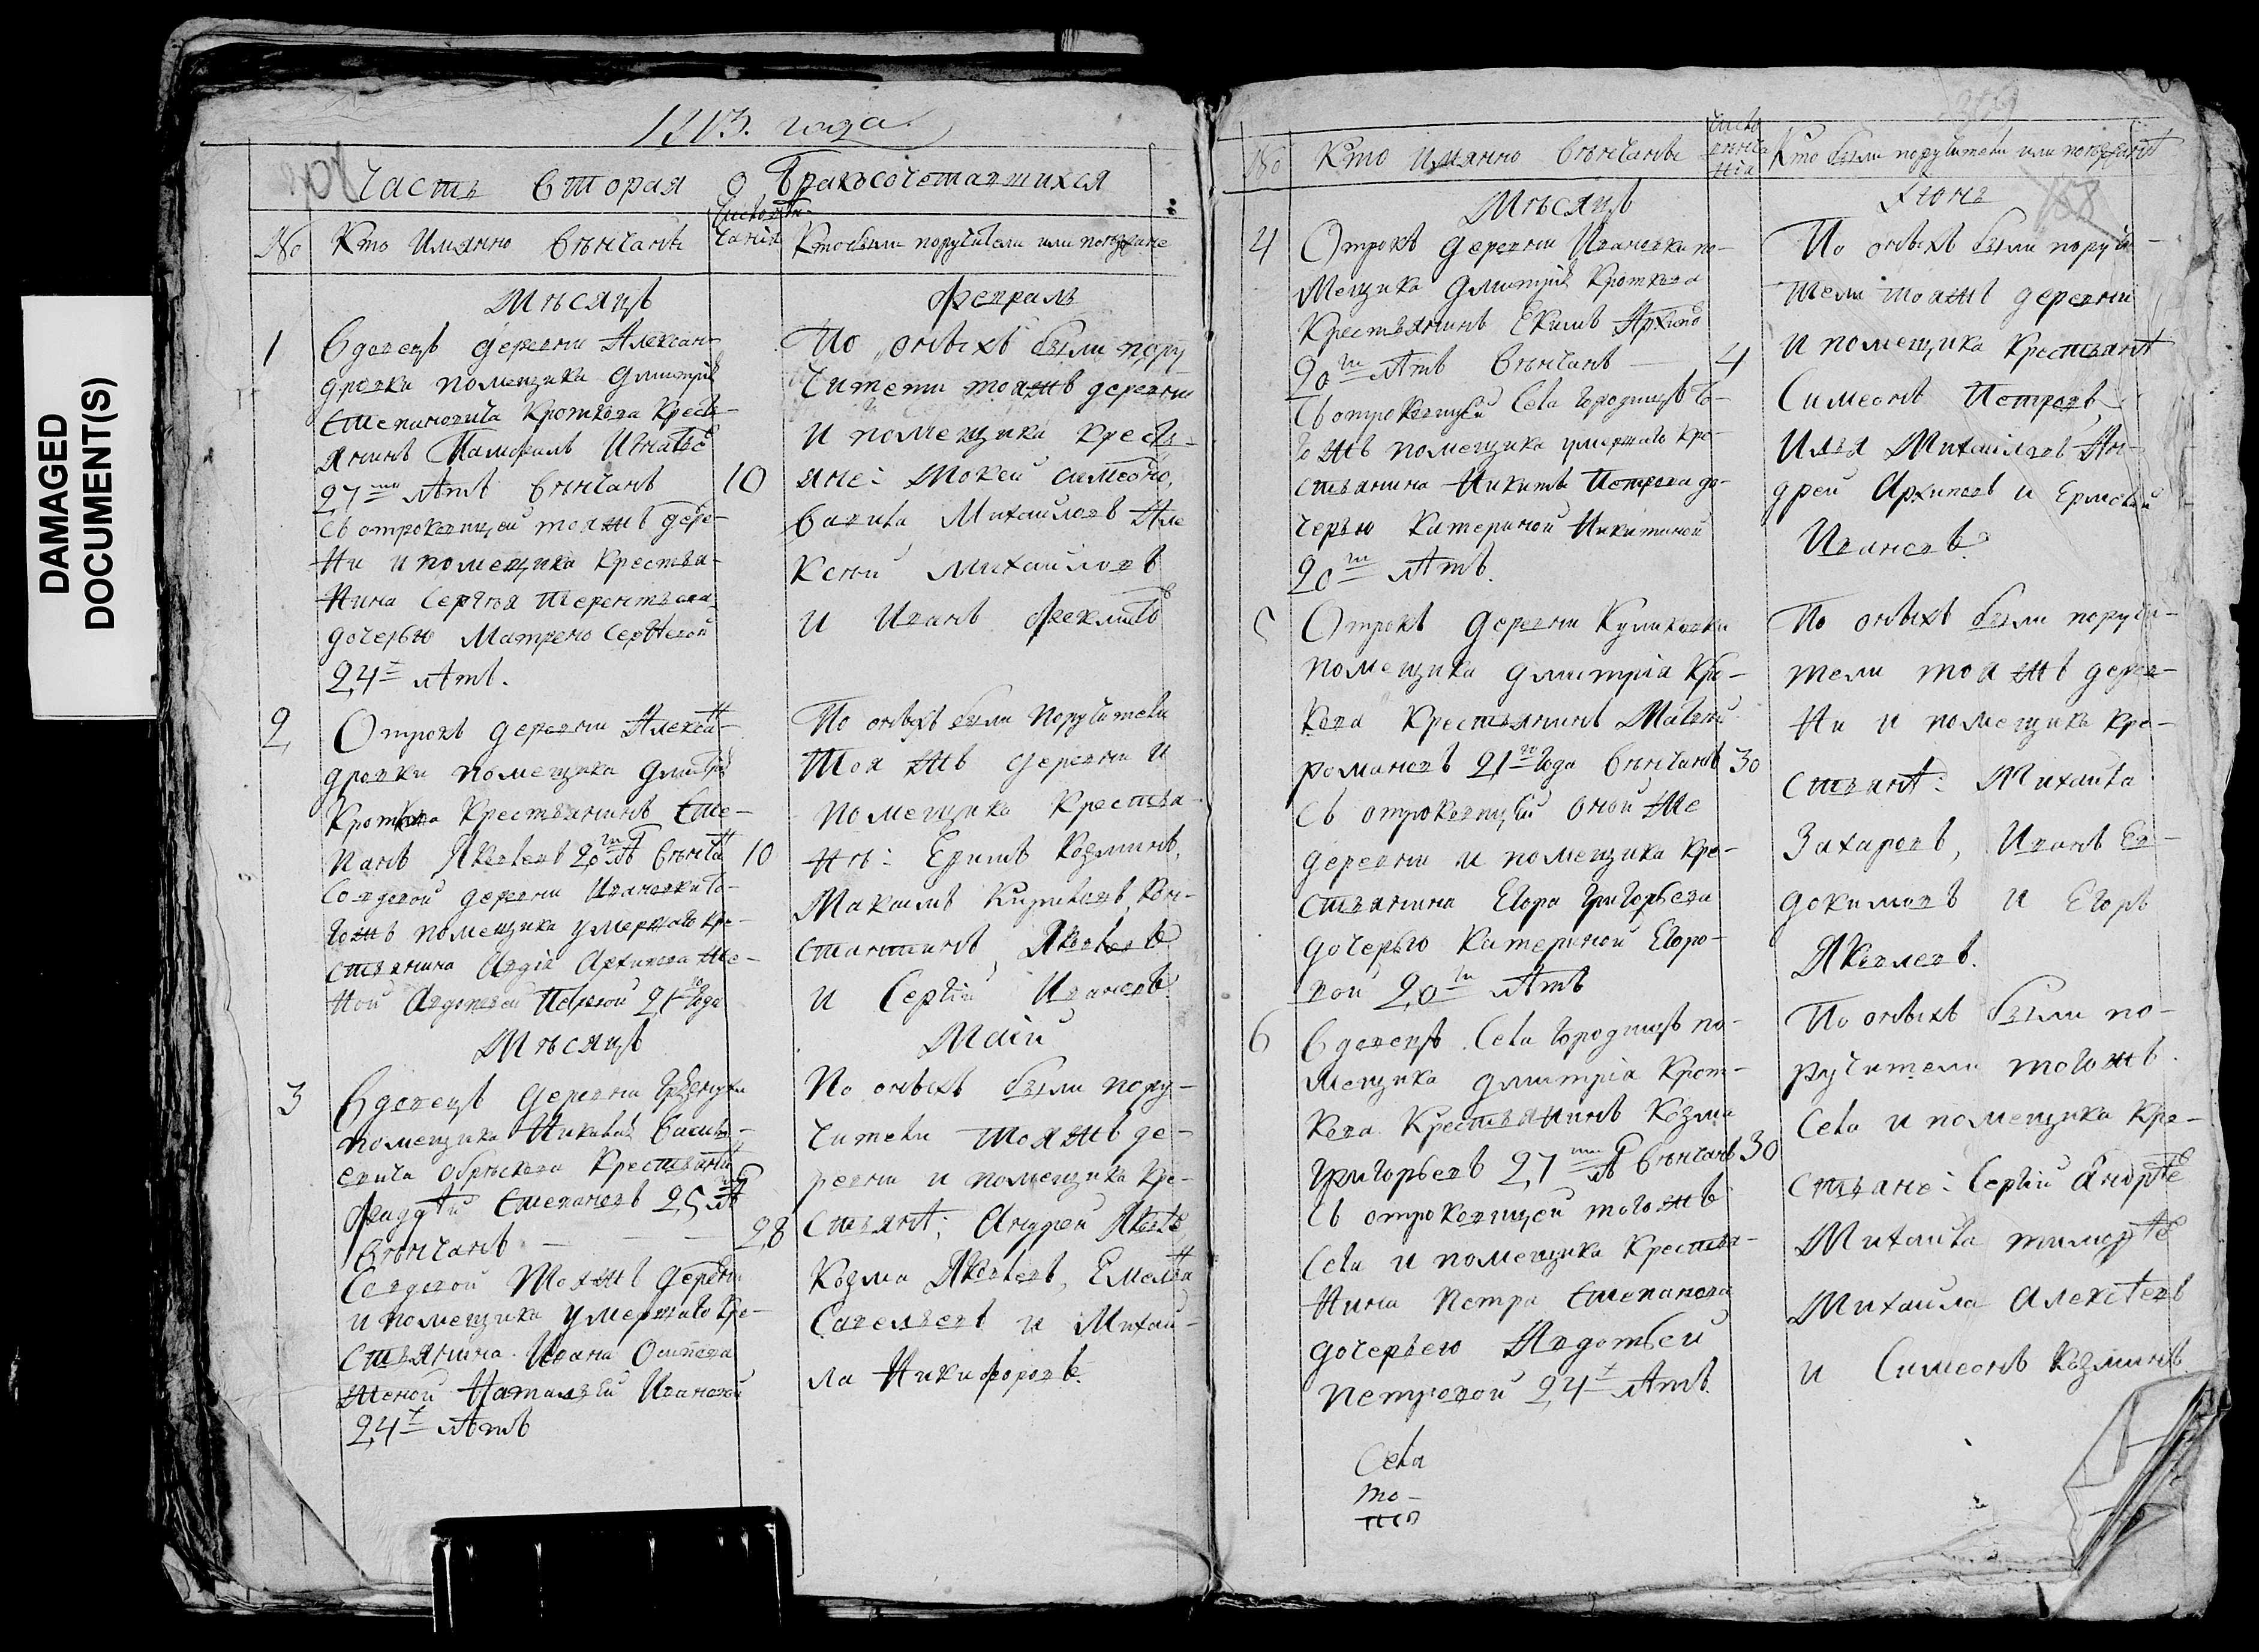 DAMAGED
DOCUMENT(S)
1813. года
Часть вторая о бракосочетавшихся
№ Кто имянно венчаны
Кто были поручители или поезжане
Месяцъ Февраль
1
Вдовецъ деревни Александ-
ровки помещика Дмитрія
Степановича Кроткова кресть-
янинъ Памфилъ Игнатье
27ми летъ венчанъ 10
съ отроковицей тояжъ дере-
ни и помещика крестья-
нина Сергея Терентьева
дочерью Матреною Сергеевой
24х летъ.
По оныхъ были пору-
чители тояжъ деревни
и помещика кресть-
яне: Мокей Симеоно,
Вавила Михайловъ Але
ксей Михайловъ
и Иванъ Феклисто
2
Отрокъ деревни Алексан-
дровки помещика Дмитрія
Кроткова крестьянинъ Сте-
панъ Яковлевъ 20ти ле венчан 10
со вдовой деревни Ивановки то-
гожъ помещика умершаго кре-
стьянина Авдія Архипова же-
ной Авдотьей 21го года
По оныхъ были поручители
тоя жъ деревни и
помещика крестья-
не: Ефимъ Козминъ,
Максимъ Кириловъ, Кон-
стантинъ Яковлевъ
и Сергій Ивановъ.
Месяцъ Маій
3
Вдовецъ деревни
помещика Николая Василь-
евича Обрескова крестьянин
Фаддей Степановъ 25 ле
венчанъ — — — 28
со вдовой тояжъ деревни
и помещика умершаго кре-
стьянина Ивана Осипова
женой Натальей Ивановой
24х летъ
По оныхъ были пору-
чители тояжъ де-
ревни и помещика кре-
стьяне: Андрей Яковле
Козма Яковлевъ, Емельян
Савельевъ и Михай-
ла Никифоровъ.
309
№ Кто имянно венчаны
Число
венча
нія
Кто были поручители или поезжане
Месяцъ Іюнь
168
4
Отрокъ деревни Ивановки по-
мещика Дмитрія Кроткова
крестьянинъ Екимъ Архипо
20ти летъ венчанъ — 4
съ отроковицей села Городищъ то-
гожъ помещика умершаго кре-
стьянина Никиты Петрова до-
черью Катериной Никитиной
20ти летъ.
По оныхъ были поручи-
тели тояжъ деревни
и помещика крестьяне
Симеонъ Петровъ,
Илья Михайловъ Ан-
дрей Архиповъ и Ермолай
Ивановъ.
5
Отрокъ деревни Куликовки
помещика Дмитрія Кро-
кова крестьянинъ Матвей
Романовъ 21го года венчанъ 30
съ отроковицей оной же
деревни и помещика кре-
стьянина Егора Григорьева
дочерью Катериной Егоро-
вой 20ти летъ
По оныхъ были поручи-
тели тоя жъ дерев-
ни и помещика кре-
стьяне: Михаила
Захаровъ, Иванъ Ев-
докимовъ и Егоръ
Яковлевъ.
6
Вдовецъ села Городищъ по-
мещика Дмитрія Крот-
кова крестьянинъ Козма
Григорьевъ 27ми ле венчанъ 30
съ отроковицей того жъ
села и помещика крестья-
нина Петра Степанова
дочерьею Авдотьей
Петровой 24х летъ.
По оныхъ были по-
ручители тогожъ
села и помещика кре-
стьяне: Сергій Андрее
Михаила Тимофее
Михаила Алексеевъ
и Симеонъ Козминъ.
Села
то-